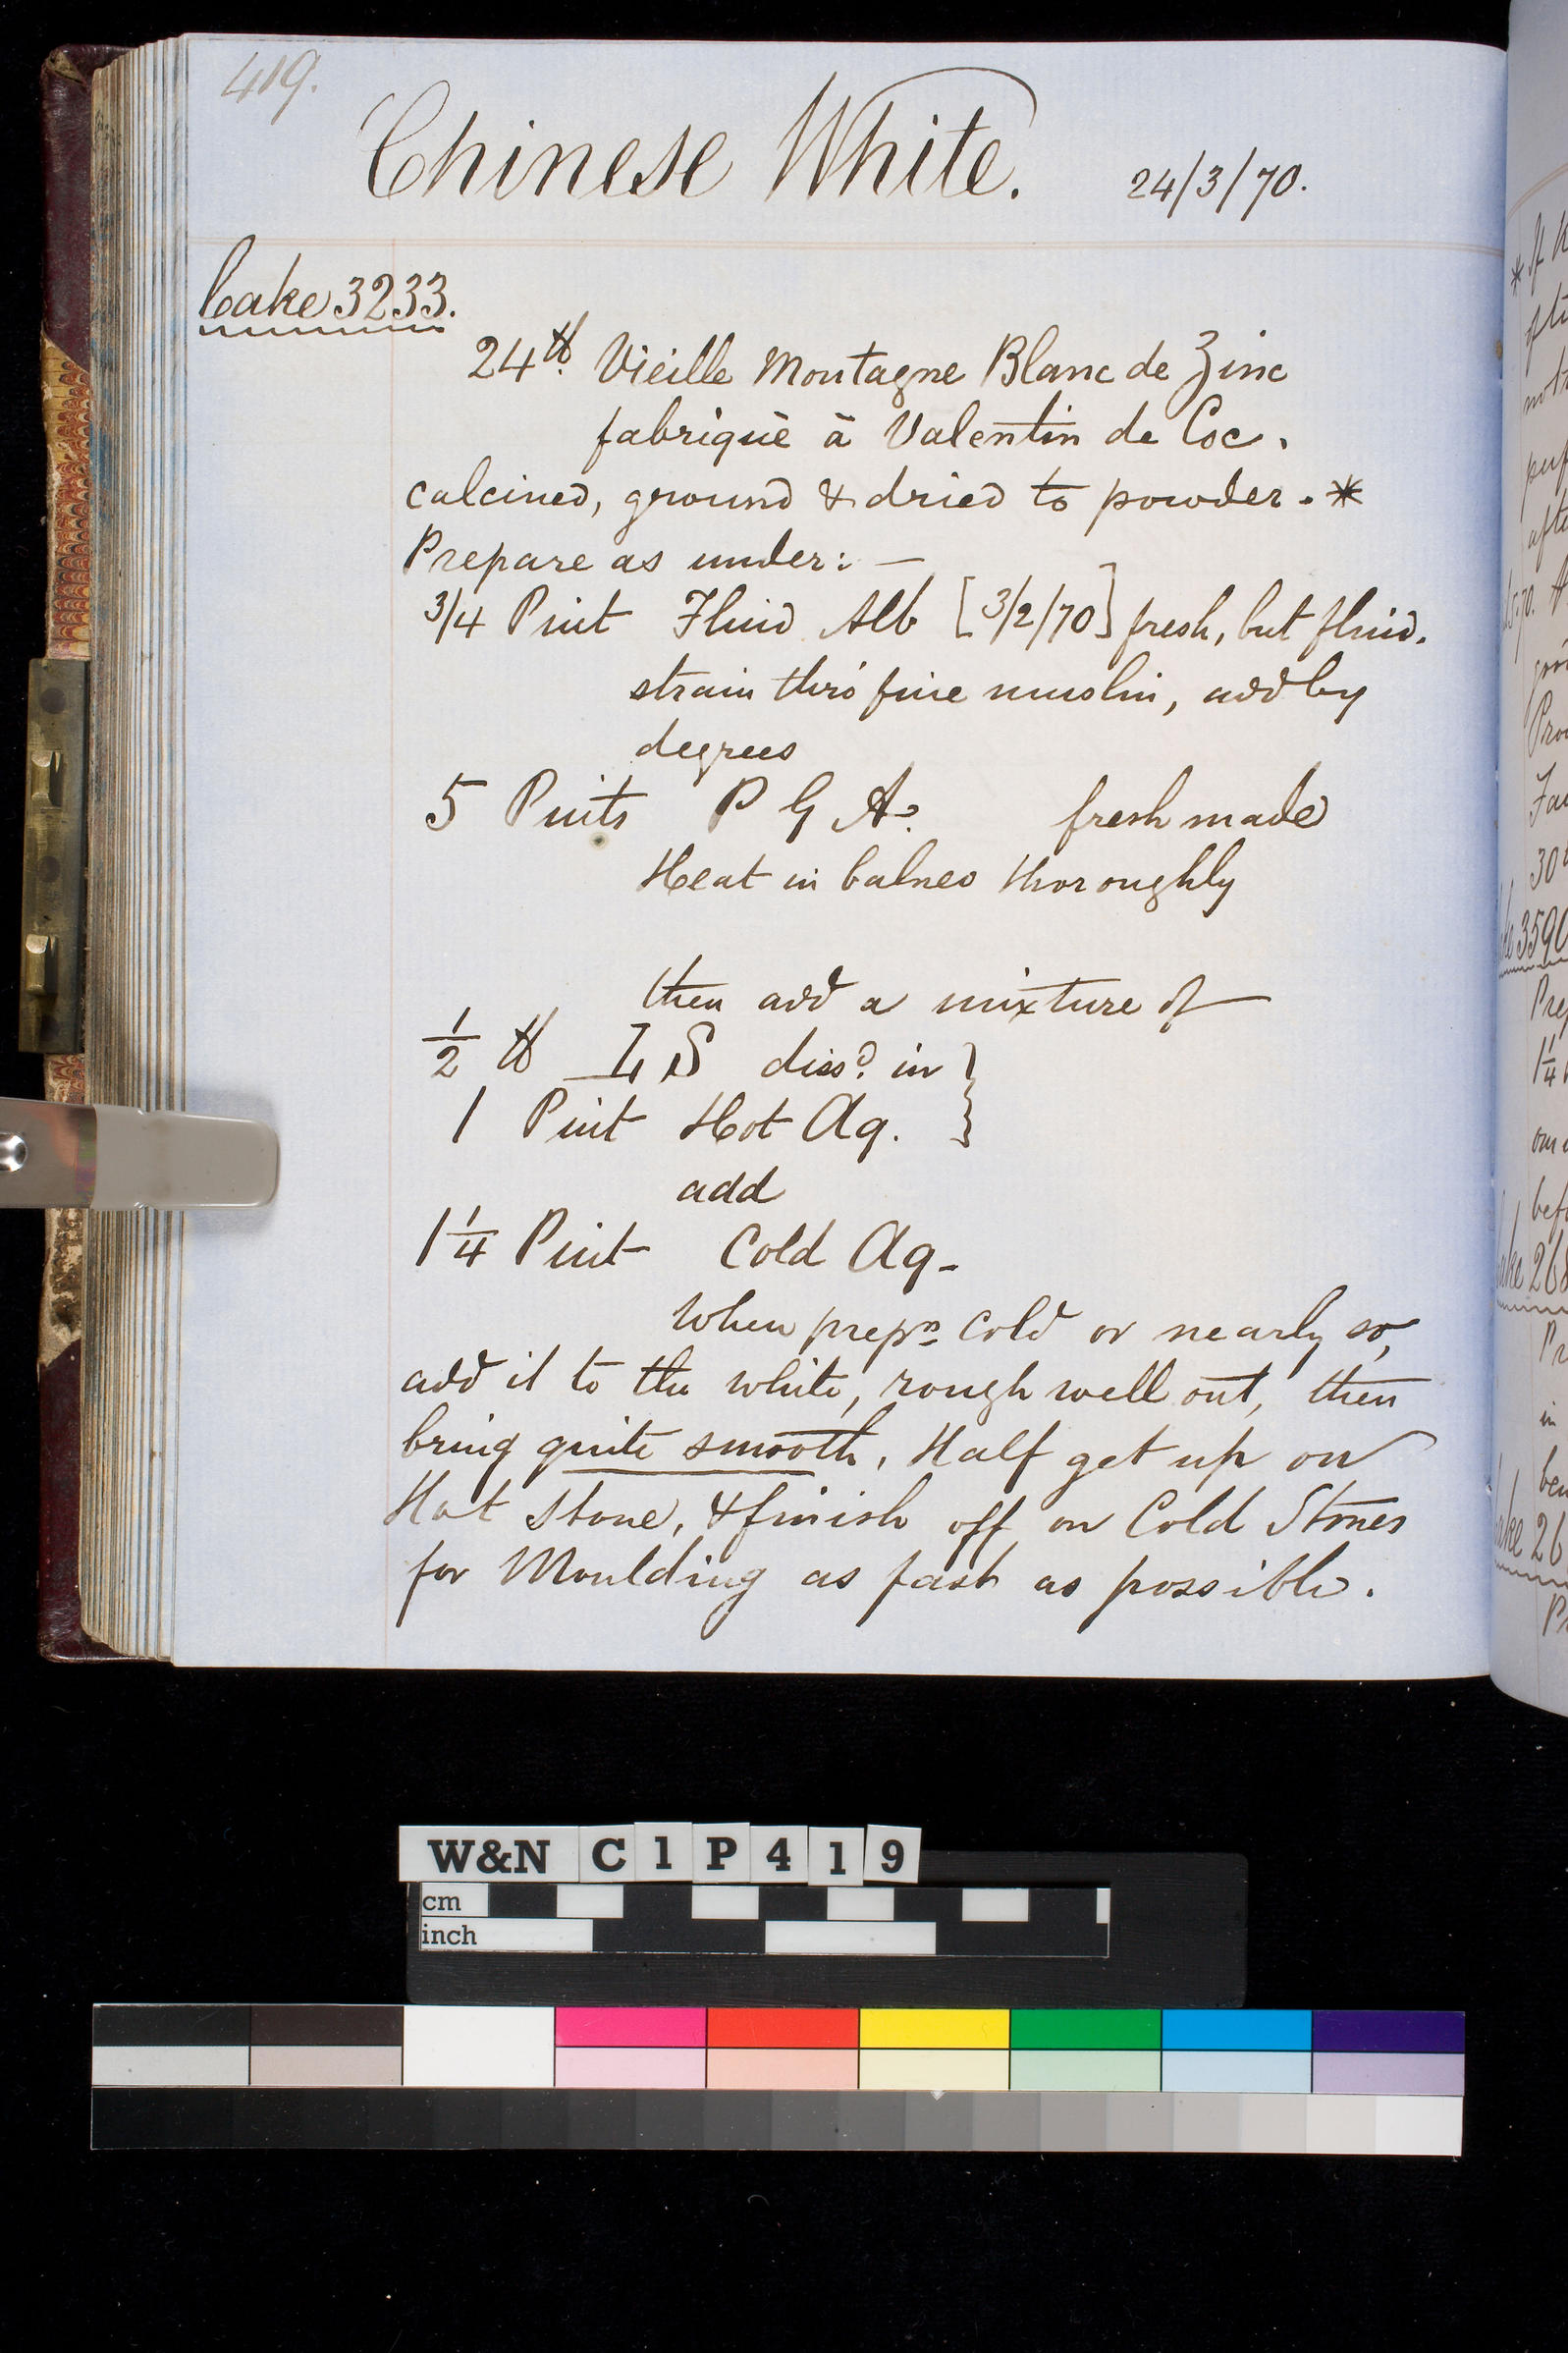 419.
Chinese White. 24/3/70.
Cake 3233.
24 ℔. Vieille Montagne Blanc de Zinc
fabriquè à Valentin de Coc.
calcined, ground & dried to powder. *
Prepare as under: —
3/4 Pint Fluid Alb [3/2/70] fresh, but fluid.
strain thro' fine muslin, add by
degrees
5 Pints P G A. fresh made
Heat in balneo thoroughly
then add a mixture of
1/2 ℔ L S dissd. in }
1 Pint Hot Aq. }
add
1 1/4 Pint Cold Aq-
When prepn cold or nearly so,
add it to the white, rough well out, then
bring quite smooth, Half get up on
Hot stone, & finish off on Cold Stones
for Moulding as fast as possible.
W&N C 1 P 4 1 9
cm
inch